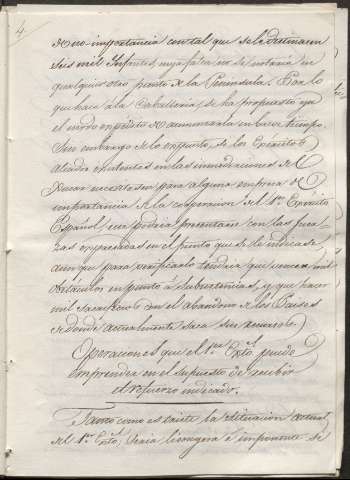 4.
de no-importancia con tal que se le destinasen
seis mil Infantes, cuya falta no se notaria en
qualquier otro punto de la Peninsula. Por lo
que hace a la Caballeria se ha propuesto ya
el modo expedito de aumentarla en breve tiempo.
Sin embargo de lo expuesto si los Exercitos
aliados existentes en las inmediaciones del
Ducar necesitasen para alguna empresa de
importancia de la cooperacion del 1er Exercito
Español, este podria presentarse con las fuer-
zas expresadas en el punto que se le indicase
aunque para verificarlo tendria que vencer mil
obstaculos en punto a subsistencias, y que hacer
mil sacrificios en el abandono de los Paises
de donde actualmente saca sus recursos.
Operaciones que el 1er Exto. puede
emprender en el supuesto de recibir
el refuerzo indicado.
Tanto como es triste la situacion actual
del 1er Exto; seria lisongera é imponente si